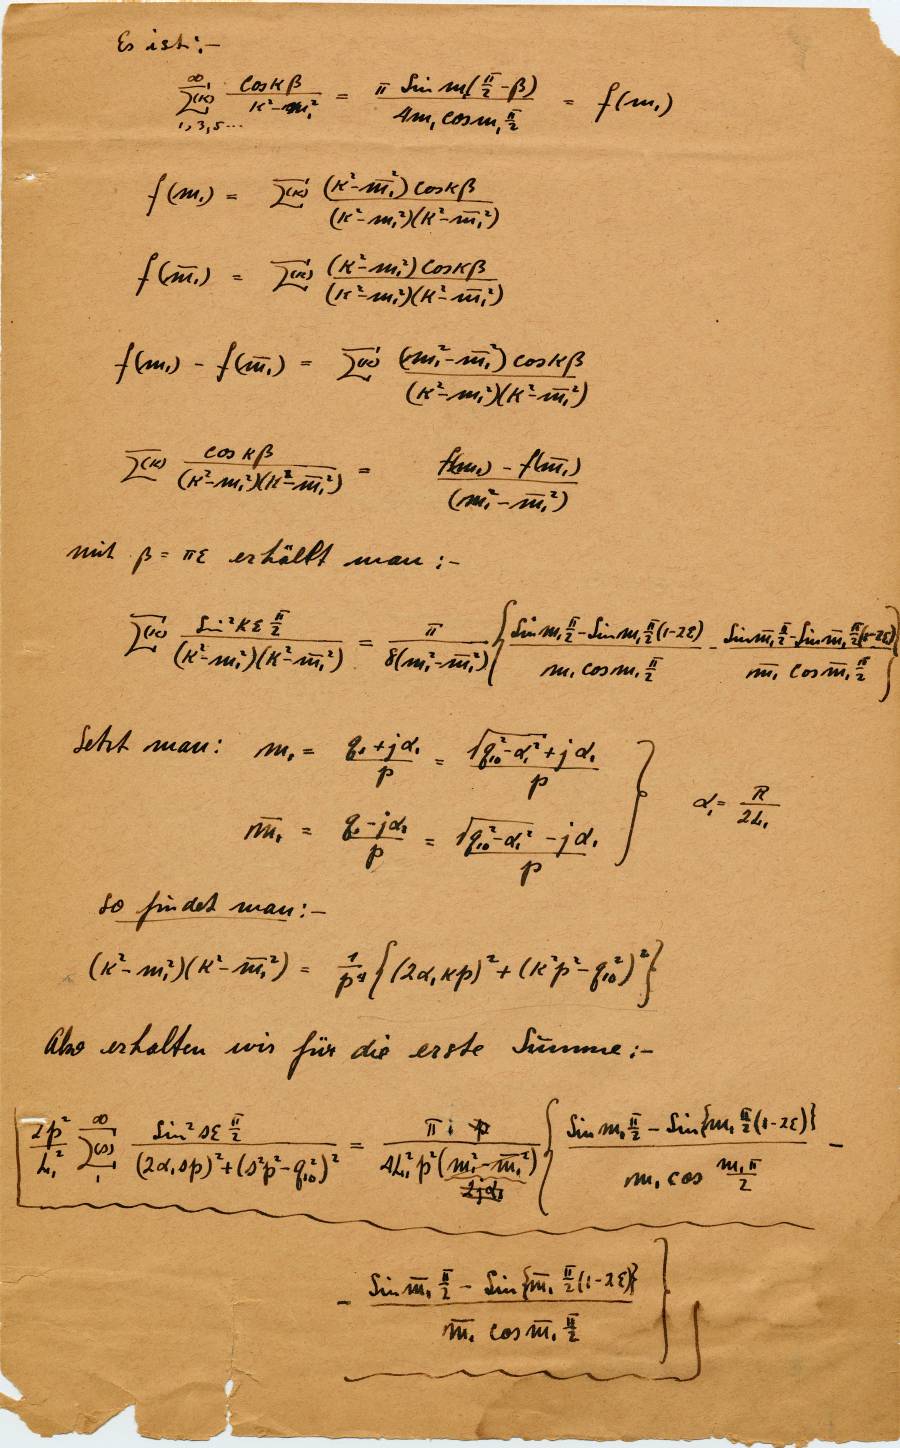 Es ist:-
∞ ∑(k) 1,3,5... cos kβ / (k² - m₁²) = π Sin m₁(π/2 - β) / (4m₁ cos m₁ π/2) = f(m₁)
f(m₁) = ∑(k) (k² - m̄₁²) cos kβ / ((k² - m₁²)(k² - m̄₁²))
f(m̄₁) = ∑(k) (k² - m₁²) cos kβ / ((k² - m₁²)(k² - m̄₁²))
f(m₁) - f(m̄₁) = ∑(k) (m₁² - m̄₁²) cos kβ / ((k² - m₁²)(k² - m̄₁²))
∑(k) cos kβ / ((k² - m₁²)(k² - m̄₁²)) = (f(m₁) - f(m̄₁)) / (m₁² - m̄₁²)
mit β = πε erhällt man:-
∑(k) Sin² kε π/2 / ((k² - m₁²)(k² - m̄₁²)) = π / (8(m₁² - m̄₁²)) { (Sin m₁ π/2 - Sin m₁ π/2 (1-2ε)) / (m₁ cos m₁ π/2) - (Sin m̄₁ π/2 - Sin m̄₁ π/2 (1-2ε)) / (m̄₁ cos m̄₁ π/2) }
Setzt man: m₁ = (q₁ + jα₁) / p = (√(q₁₀² - α₁²) + jα₁) / p
m̄₁ = (q₁ - jα₁) / p = (√(q₁₀² - α₁²) - jα₁) / p } α₁ = R / 2L₁
so findet man:-
(k² - m₁²)(k² - m̄₁²) = 1/p⁴ { (2α₁kp)² + (k²p² - q₁₀²)² }
Also erhalten wir für die erste Summe:-
2p²/L₁² ∞ ∑(s) 1 Sin² sε π/2 / ((2α₁sp)² + (s²p² - q₁₀²)²) = π / (4L₁²p²(m₁² - m̄₁²)) { (Sin m₁ π/2 - Sin{m₁ π/2 (1-2ε)}) / (m₁ cos m₁π/2) -
- (Sin m̄₁ π/2 - Sin{m̄₁ π/2 (1-2ε)}) / (m̄₁ cos m̄₁ π/2) }